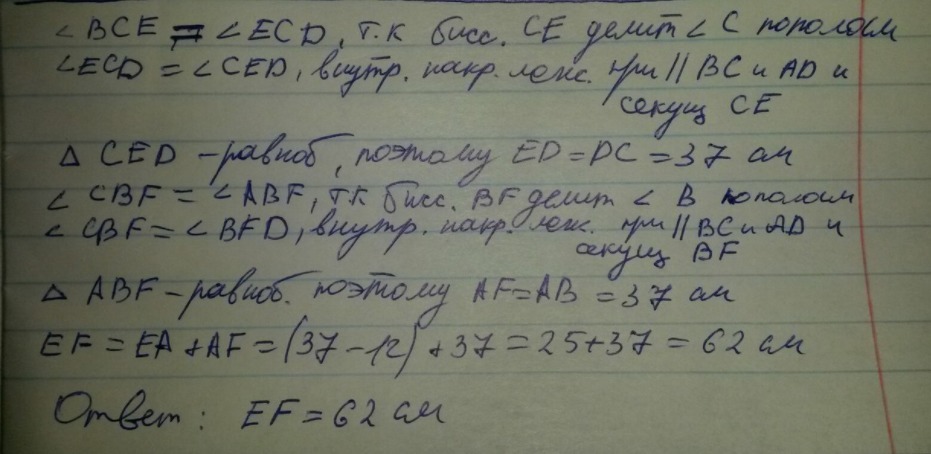 ∠BCE = ∠ECD, т.к бисс. CE делит ∠C пополам
∠ECD = ∠CED, внутр. накр. леж. при || BC и AD и
секущ CE
△ CED – равноб, поэтому ED = DC = 37 см
∠ CBF = ∠ABF, т.к бисс. BF делит ∠ B пополам
∠ CBF = ∠BFD, внутр. накр. леж. при || BC и AD и
секущ BF
△ ABF – равноб. поэтому AF = AB = 37 см
EF = EA + AF = (37 – 12) + 37 = 25 + 37 = 62 см
Ответ: EF = 62 см